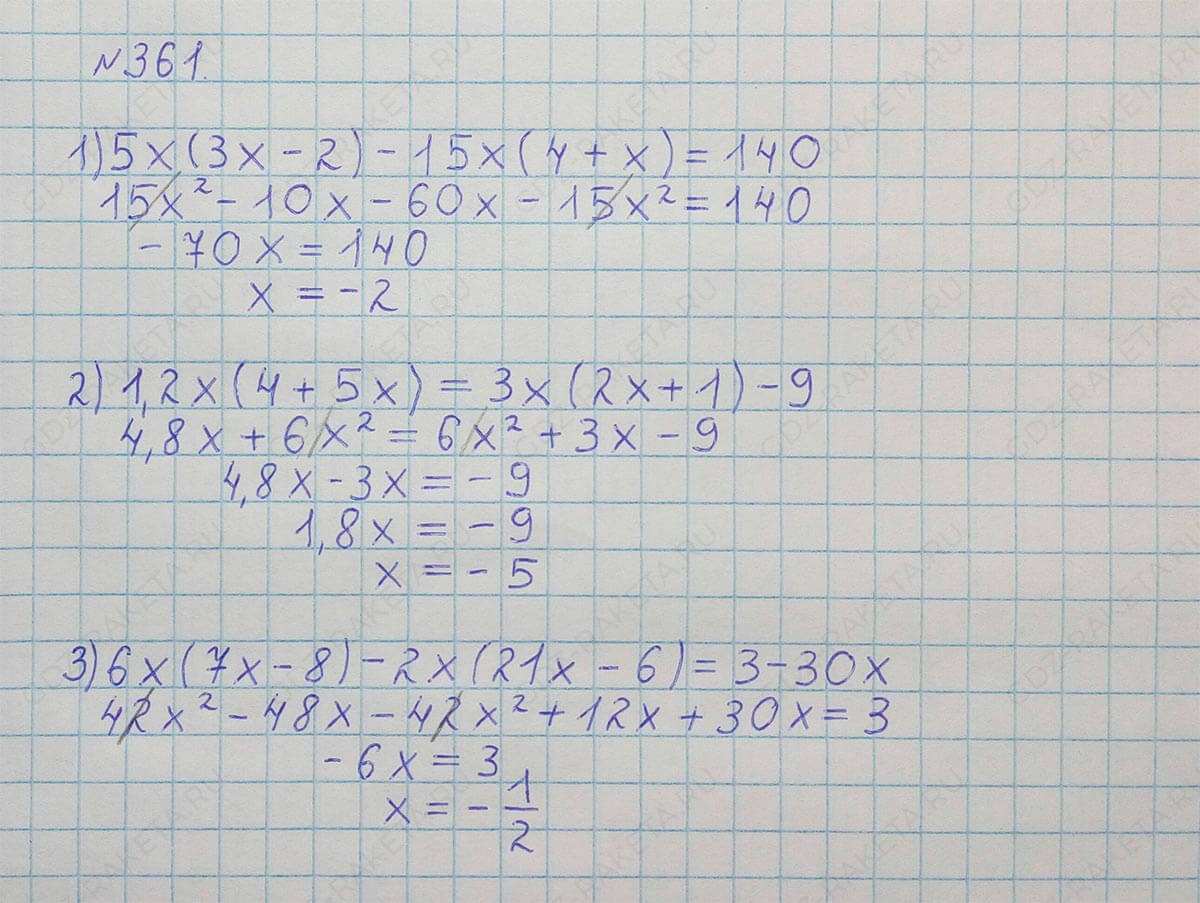 №361.
1) 5x(3x - 2) - 15x(4 + x) = 140
15x² - 10x - 60x - 15x² = 140
- 70x = 140
x = - 2
2) 1,2x(4 + 5x) = 3x(2x + 1) - 9
4,8x + 6x² = 6x² + 3x - 9
4,8x - 3x = - 9
1,8x = - 9
x = - 5
3) 6x(7x - 8) - 2x(21x - 6) = 3 - 30x
42x² - 48x - 42x² + 12x + 30x = 3
- 6x = 3
x = - 1/2
GDZ-RAKETA.RU